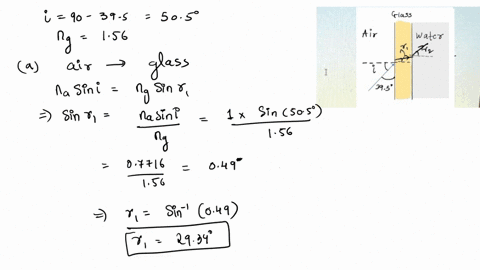 i = 90 - 39.5 = 50.5°
ng = 1.56
(a) air → glass
na Sin i = ng Sin r₁
⇒ Sin r₁ = na Sin i / ng = 1 × Sin (50.5°) / 1.56
= 0.7716 / 1.56 = 0.49°
⇒ r₁ = Sin⁻¹ (0.49)
r₁ = 29.34°
Glass
Air
Water
r₁
r₂
i
39.5°